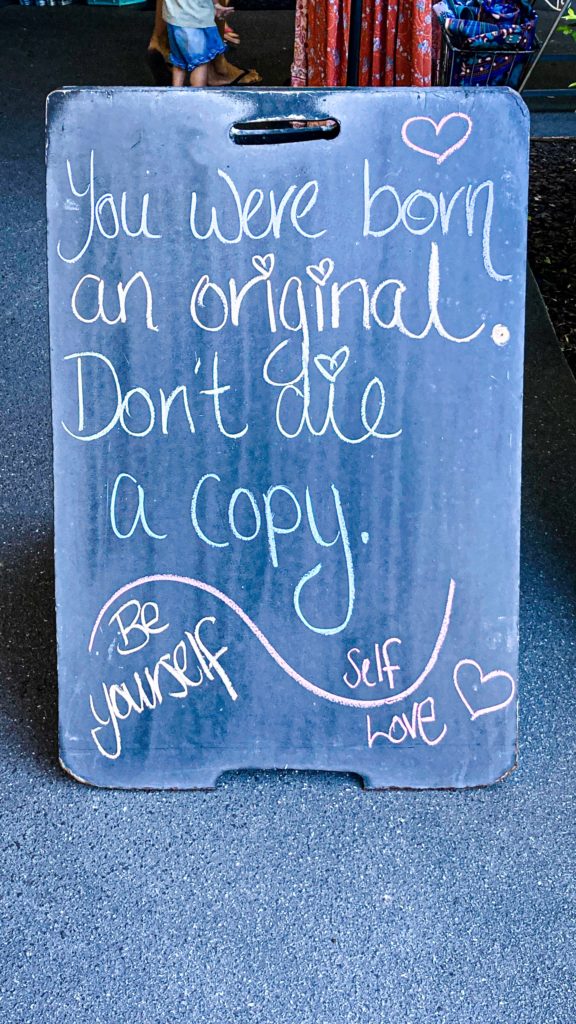 You were born
an original.
Don't die
a copy.
Be
yourself
Self
Love